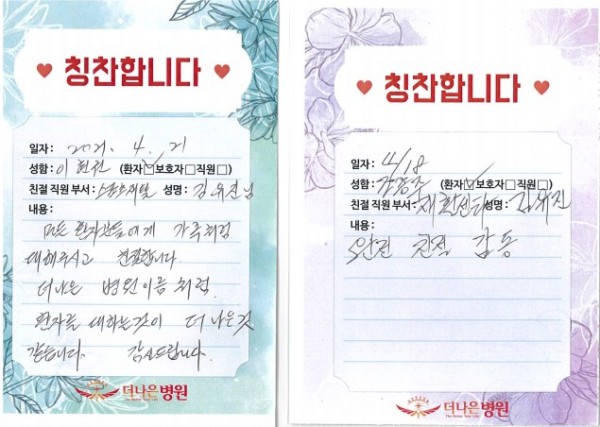 ♥ 칭찬합니다 ♥
일자 : 2021. 4. 21
성함 : 이 (환자☑보호자☐직원☐)
친절 직원 부서 : 성명 : 김유진님
내용 :
모든 환자분들에게 가족처럼
대해주시고 친절합니다
더나은 병원이름 처럼
환자를 대하는것이 더 나은것
같습니다. 감사드립니다.
더나은병원
♥ 칭찬합니다 ♥
일자 : 4/18
성함 : (환자☑보호자☐직원☐)
친절 직원 부서 : 재활센터 성명 : 김유진
내용 :
친절 감동
더나은병원